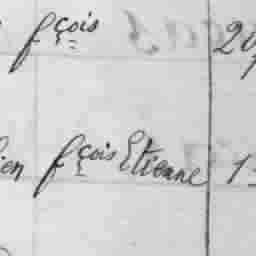 fçois 20
ien fçois Etienne 1